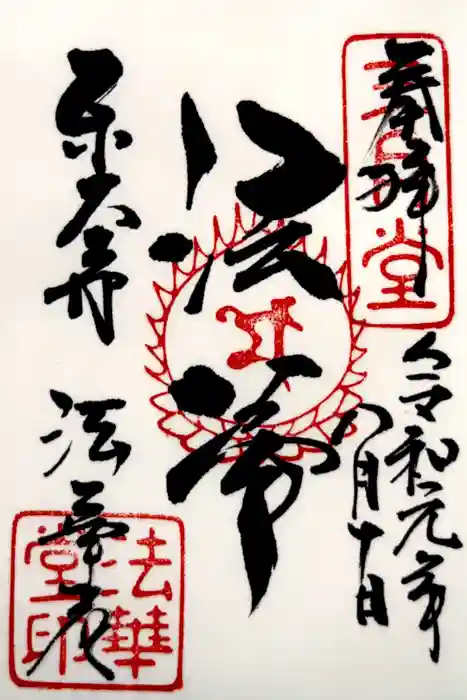 奉拝
令和元年
八月十日
法華
東大寺
法華堂
法華
堂印